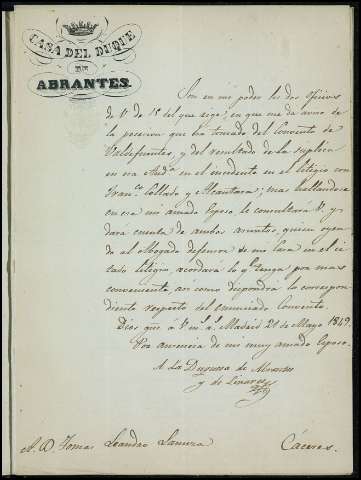 CASA DEL DUQUE
DE
ABRANTES.
Son en mi poder los dos oficios
de V. de 15 del que rige; en que me da aviso de
la posesion que ha tomado del Convento de
Valdefuentes, y del resultado de la suplica
en esa Aud.ª en el incidente en el litigio con
Fran.co Collado y Alcantara; mas hallandose
en esa mi amado Esposo, le consultará V. y
dará cuenta de ambos asuntos, quien oyen-
do al Abogado defensor de mi Casa en el ci-
tado litigio, acordará lo q.e tenga por mas
conveniente asi como dispondrá lo correspon-
diente respecto del enunciado Convento.
Dios gue. a V. m. a. Madrid 21 de Mayo 1849.
Por ausencia de mi muy amado Esposo.
A La Duquesa de Abrantes
y de Linares
A. D. Tomas Leandro Cáceres.